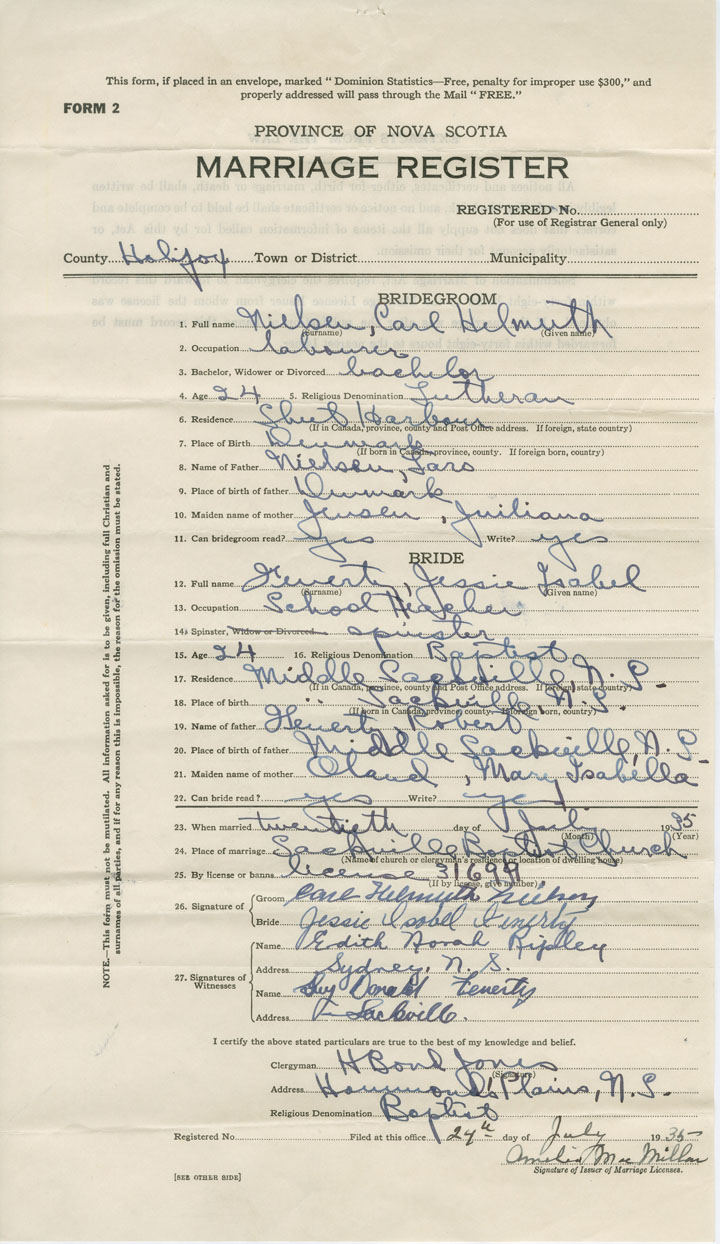 This form, if placed in an envelope, marked " Dominion Statistics—Free, penalty for improper use $300," and
properly addressed will pass through the Mail " FREE."
FORM 2
PROVINCE OF NOVA SCOTIA
MARRIAGE REGISTER
REGISTERED No.
(For use of Registrar General only)
County Halifax Town or District Municipality
BRIDEGROOM
1. Full name Nielsen, Carl Helmuth
(Surname) (Given name)
2. Occupation labourer
3. Bachelor, Widower or Divorced bachelor
4. Age 24 5. Religious Denomination Lutheran
6. Residence Sheet Harbour
(If in Canada, province, county and Post Office address. If foreign, state country)
7. Place of Birth Denmark
(If born in Canada, province, county. If foreign born, country)
8. Name of Father Nielsen, Lars
9. Place of birth of father Denmark
10. Maiden name of mother Jensen, Juiliana
11. Can bridegroom read? yes Write? yes
BRIDE
12. Full name Fenerty, Jessie Isabel
(Surname) (Given name)
13. Occupation School Teacher
14. Spinster, Widow or Divorced spinster
15. Age 24 16. Religious Denomination Baptist
17. Residence Middle Sackville, N.S.
(If in Canada, province, county and Post Office address. If foreign, state country)
18. Place of birth " Sackville, N.S.
(If born in Canada, province, county. If foreign born, country)
19. Name of father Fenerty, Robert
20. Place of birth of father Middle Sackville, N.S.
21. Maiden name of mother Oland, Mary Isabella
22. Can bride read? yes Write? yes
23. When married twentieth day of July 1935
(Month) (Year)
24. Place of marriage Sackville Baptist Church
(Name of church or clergyman's residence or location of dwelling house)
25. By license or banns license 31699
(If by license, give number)
26. Signature of Groom Carl Helmuth Nielsen
Bride Jessie Isabel Fenerty
27. Signatures of Witnesses
Name Edith Norah Ripley
Address Sydney, N.S.
Name Guy Donald Fenerty
Address Sackville.
I certify the above stated particulars are true to the best of my knowledge and belief.
Clergyman H Bond Jones
(Signature)
Address Hammonds Plains, N.S.
Religious Denomination Baptist
Registered No. Filed at this office 24th day of July 1935
Amelia MacMillan
Signature of Issuer of Marriage Licenses.
[SEE OTHER SIDE]
NOTE.—This form must not be mutilated. All information asked for is to be given, including full Christian and
surnames of all parties, and if for any reason this is impossible, the reason for the omission must be stated.